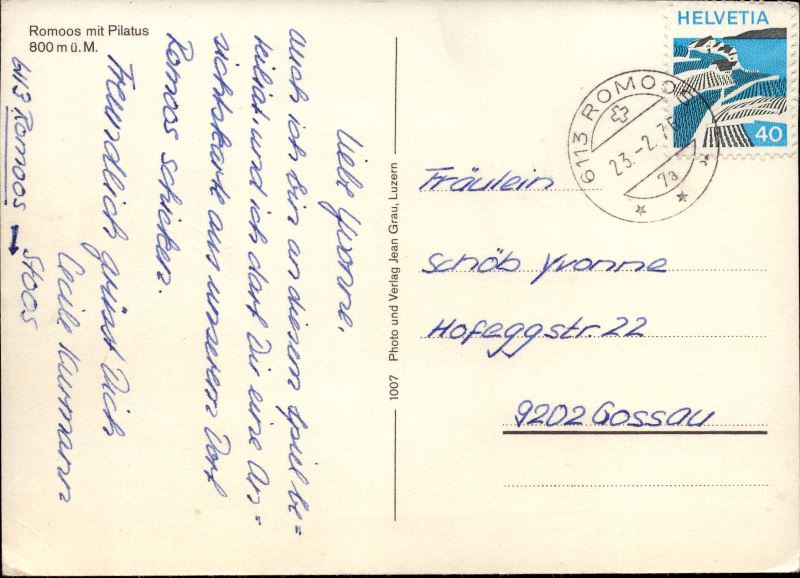 Romoos mit Pilatus
800 m ü. M.
Liebe Yvonne.
auch ich bin an diesem Spiel be=
teiligt und ich darf Dir eine An=
sichtskarte aus unserem Dorf
Romoos schicken.
Freundlich grüsst Dich
Cecile Kurmann
6113 Romoos → Stoos
1007 Photo und Verlag Jean Grau, Luzern
HELVETIA
40
6113 ROMOOS
23.-2.76
7a
Fräulein
Schöb Yvonne
Hofeggstr. 22
9202 Gossau